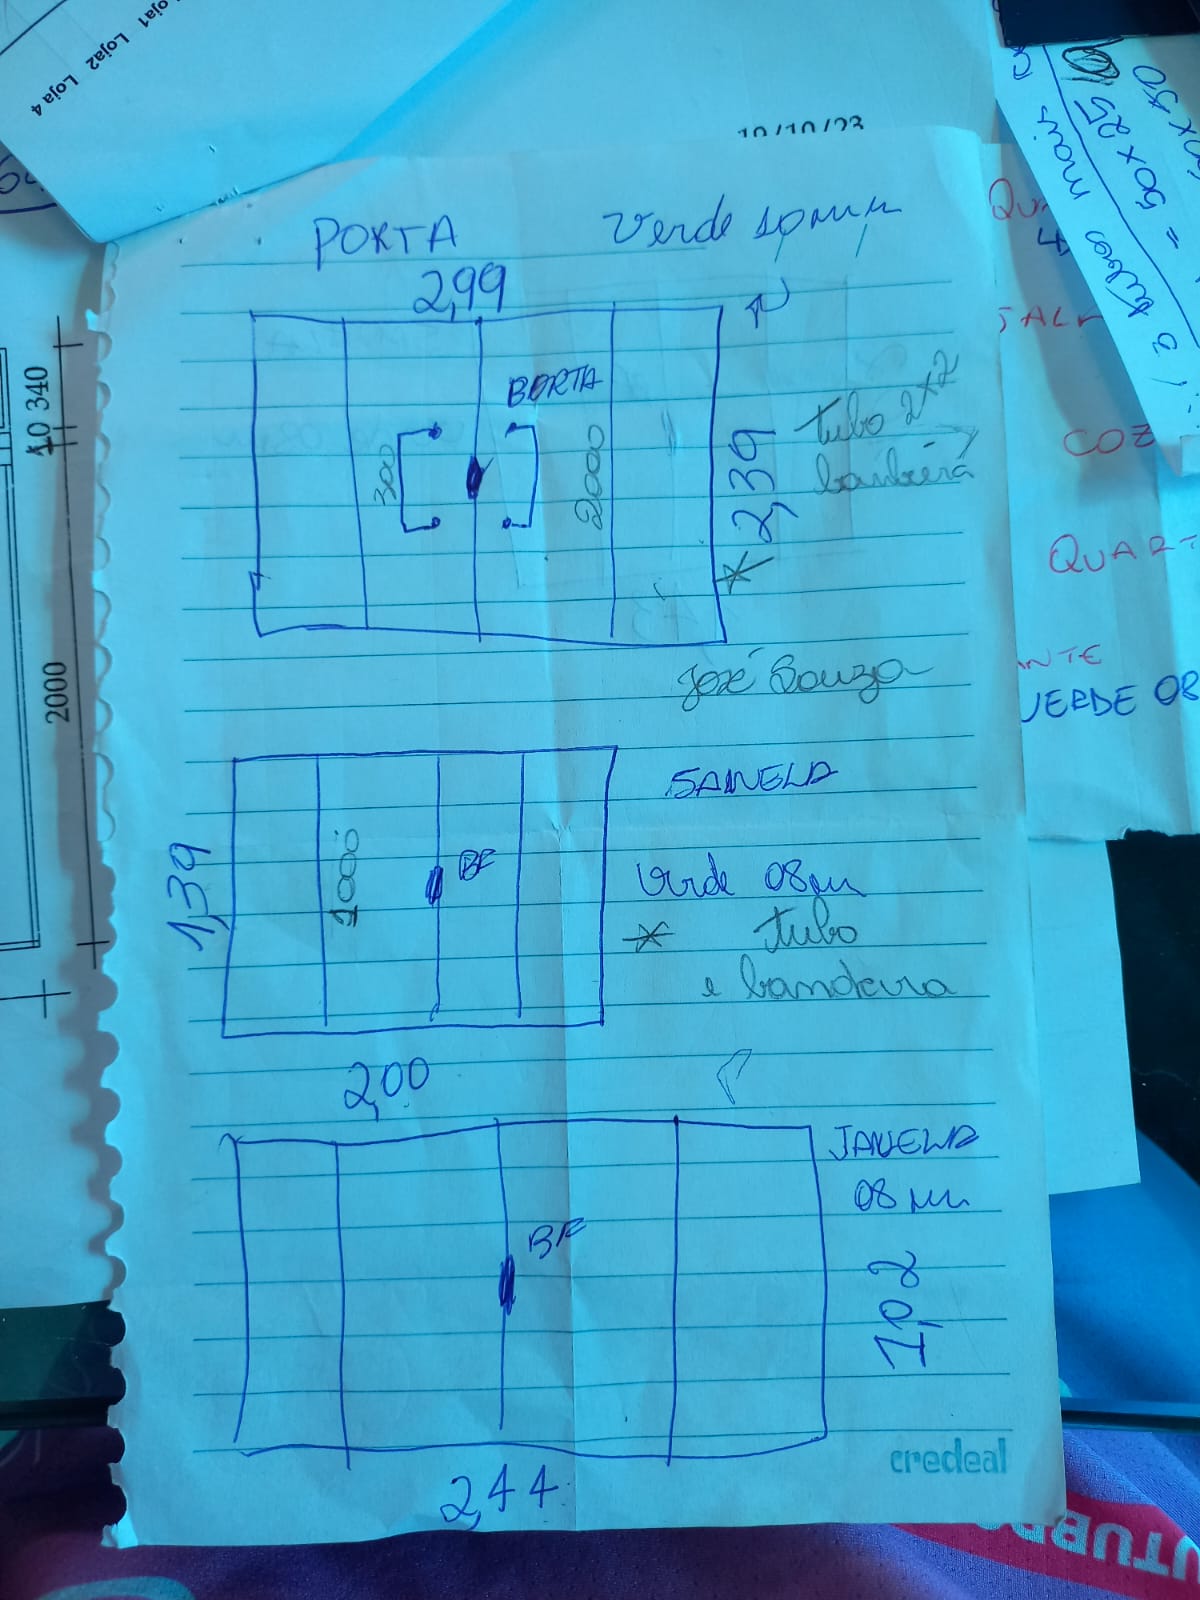 Loja1 Loja2 Loja 4
10/10/23
PORTA
Verde 10mm
2,99
BORTA
300
2000
2,39
tubo 2x2
bandeira
José Souza
SANELA
1,39
1000
BF
Verde 08mm
tubo
e bandeira
2,00
JANELA
08 mm
BF
1,02
2,44
credeal
340
2000
mais
= 50 x 25
COZ
QUART
ANTE
VERDE 08
TUBE